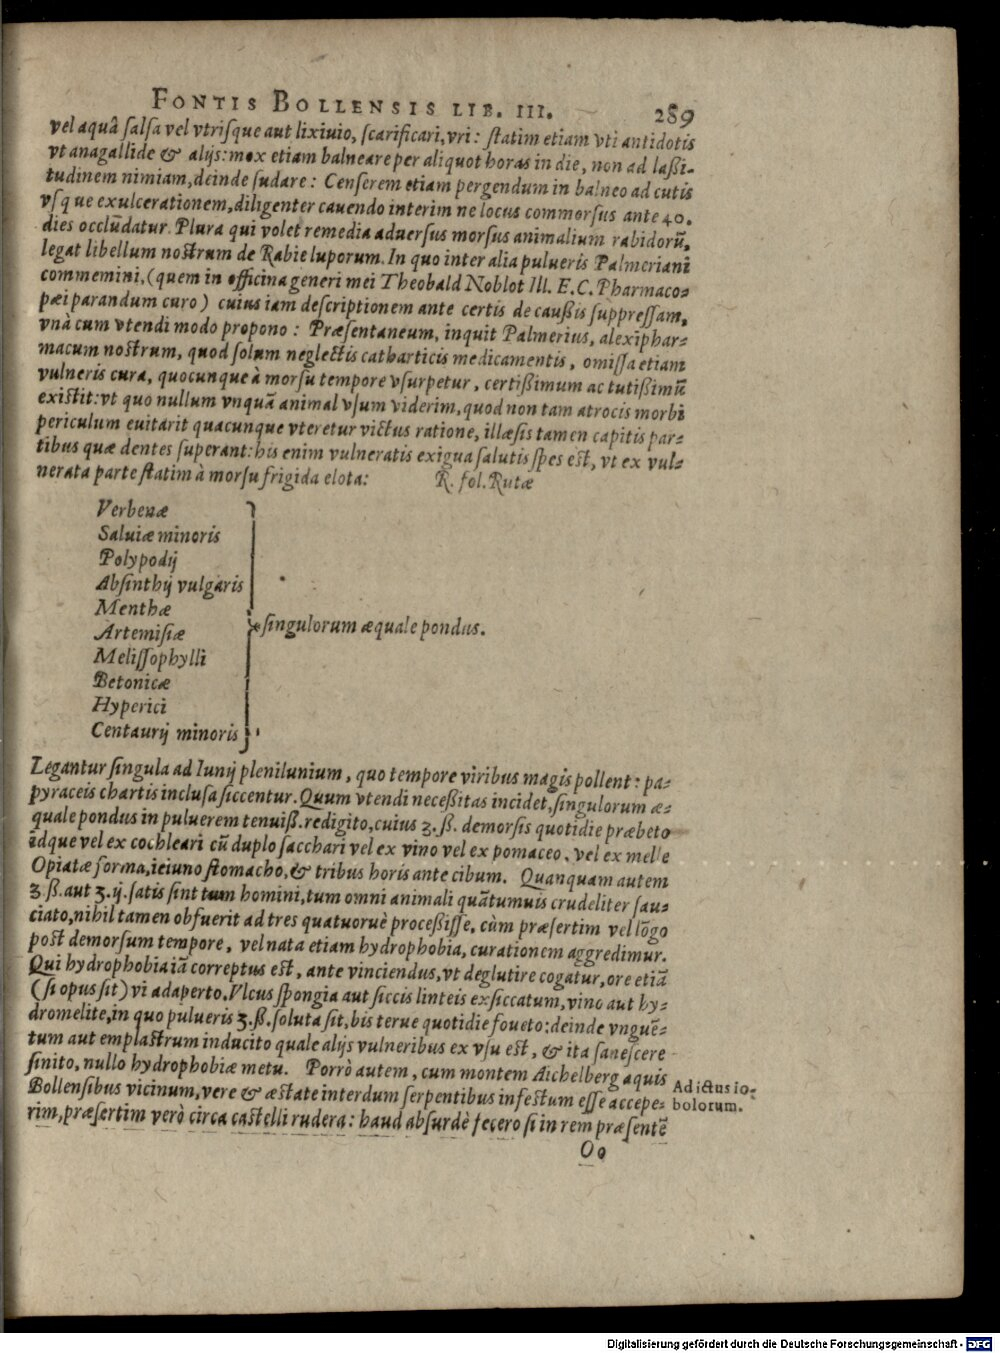 FONTIS BOLLENSIS LIB. III. 289
vel aquâ ſalſa vel vtriſque aut lixiuio, ſcarificari, vri: ſtatim etiam vti antidotis
vt anagallide & alijs: mox etiam balneare per aliquot horas in die, non ad laßi-
tudinem nimiam, deinde ſudare: Cenſerem etiam pergendum in balneo ad cutis
vſque exulcerationem, diligenter cauendo interim ne locus commorſus ante 40.
dies occlūdatur. Plura qui volet remedia aduerſus morſus animalium rabidorū,
legat libellum noſtrum de Rabie luporum. In quo inter alia pulueris Palmeriani
commemini, (quem in officina generi mei Theobald Noblot Ill. E. C. Pharmaco-
pæi parandum curo) cuius iam deſcriptionem ante certis de caußis ſuppreſſam,
vnà cum vtendi modo propono: Præſentaneum, inquit Palmerius, alexiphar-
macum noſtrum, quod ſolum neglectis catharticis medicamentis, omiſſa etiam
vulneris cura, quocunque à morſu tempore vſurpetur, certißimum ac tutißimū
exiſtit: vt quo nullum vnquā animal vſum viderim, quod non tam atrocis morbi
periculum euitarit quacunque vteretur victus ratione, illæſis tamen capitis par-
tibus quæ dentes ſuperant: his enim vulneratis exigua ſalutis ſpes eſt, vt ex vul-
nerata parte ſtatim à morſu frigida elota: R. fol. Rutæ
Verbenæ
Saluiæ minoris
Polypodij
Abſinthij vulgaris
Menthæ
Artemiſiæ ſingulorum æquale pondus.
Meliſſophylli
Betonicæ
Hyperici
Centaurij minoris
Legantur ſingula ad Iunij plenilunium, quo tempore viribus magis pollent: pa-
pyraceis chartis incluſa ſiccentur. Quum vtendi neceßitas incidet, ſingulorum æ-
quale pondus in puluerem tenuiß. redigito, cuius ʒ. ß. demorſis quotidie præbeto
idque vel ex cochleari cū duplo ſacchari vel ex vino vel ex pomaceo, vel ex melle
Opiatæ forma, ieiuno ſtomacho, & tribus horis ante cibum. Quanquam autem
ʒ. ß. aut ʒ. ij. ſatis ſint tum homini, tum omni animali quātumuis crudeliter ſau-
ciato, nihil tamen obfuerit ad tres quatuoruè proceßiſſe, cùm præſertim vel lōgo
poſt demorſum tempore, vel nata etiam hydrophobia, curationem aggredimur.
Qui hydrophobia iā correptus eſt, ante vinciendus, vt deglutire cogatur, ore etiā
(ſi opus ſit) vi adaperto. Vlcus ſpongia aut ſiccis linteis exſiccatum, vino aut hy-
dromelite, in quo pulueris ʒ. ß. ſoluta ſit, bis terue quotidie foueto: deinde vnguē-
tum aut emplaſtrum inducito quale alijs vulneribus ex vſu eſt, & ita ſaneſcere
ſinito, nullo hydrophobiæ metu. Porrò autem, cum montem Aichelberg aquis
Bollenſibus vicinum, vere & æſtate interdum ſerpentibus infeſtum eſſe accepe-
rim, præſertim verò circa caſtelli rudera: haud abſurdè fecero ſi in rem præſentē
Ad ictus io-
bolorum.
Oo
Digitalisierung gefördert durch die Deutsche Forschungsgemeinschaft - DFG